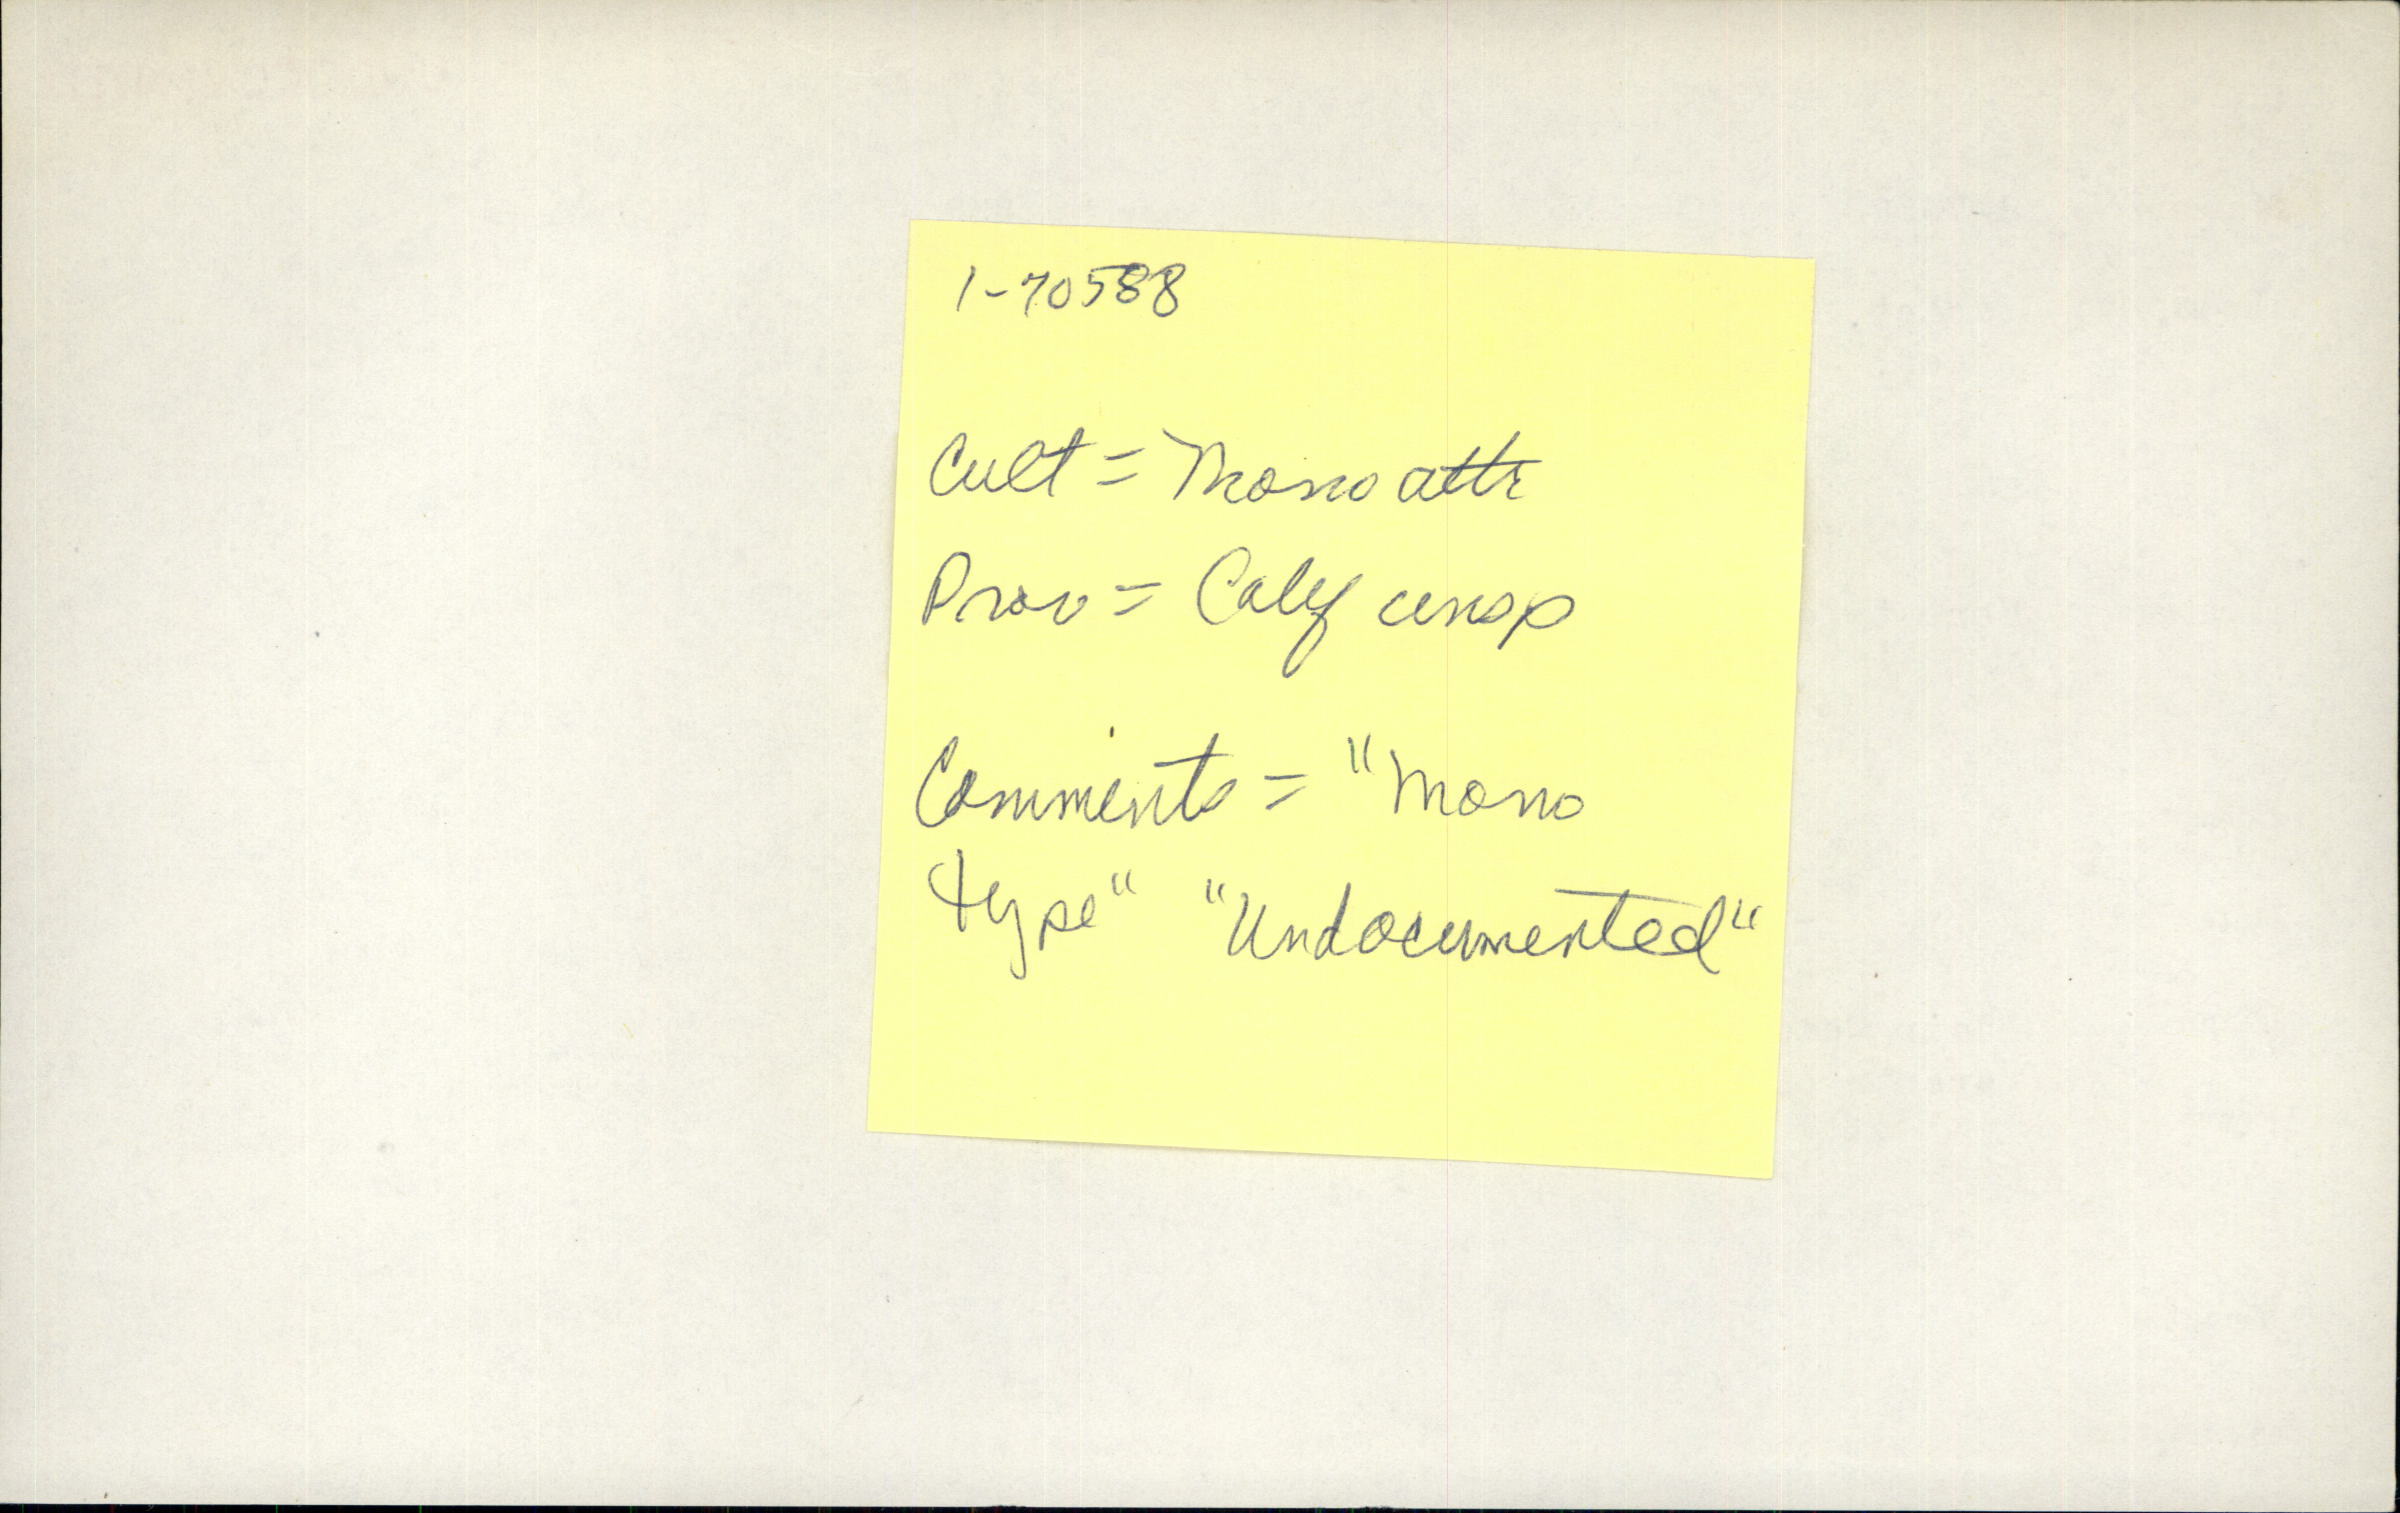 1-70588
Cult = Mono attr
Prov = Calif unsp
Comments = "Mono
type" "Undocumented"